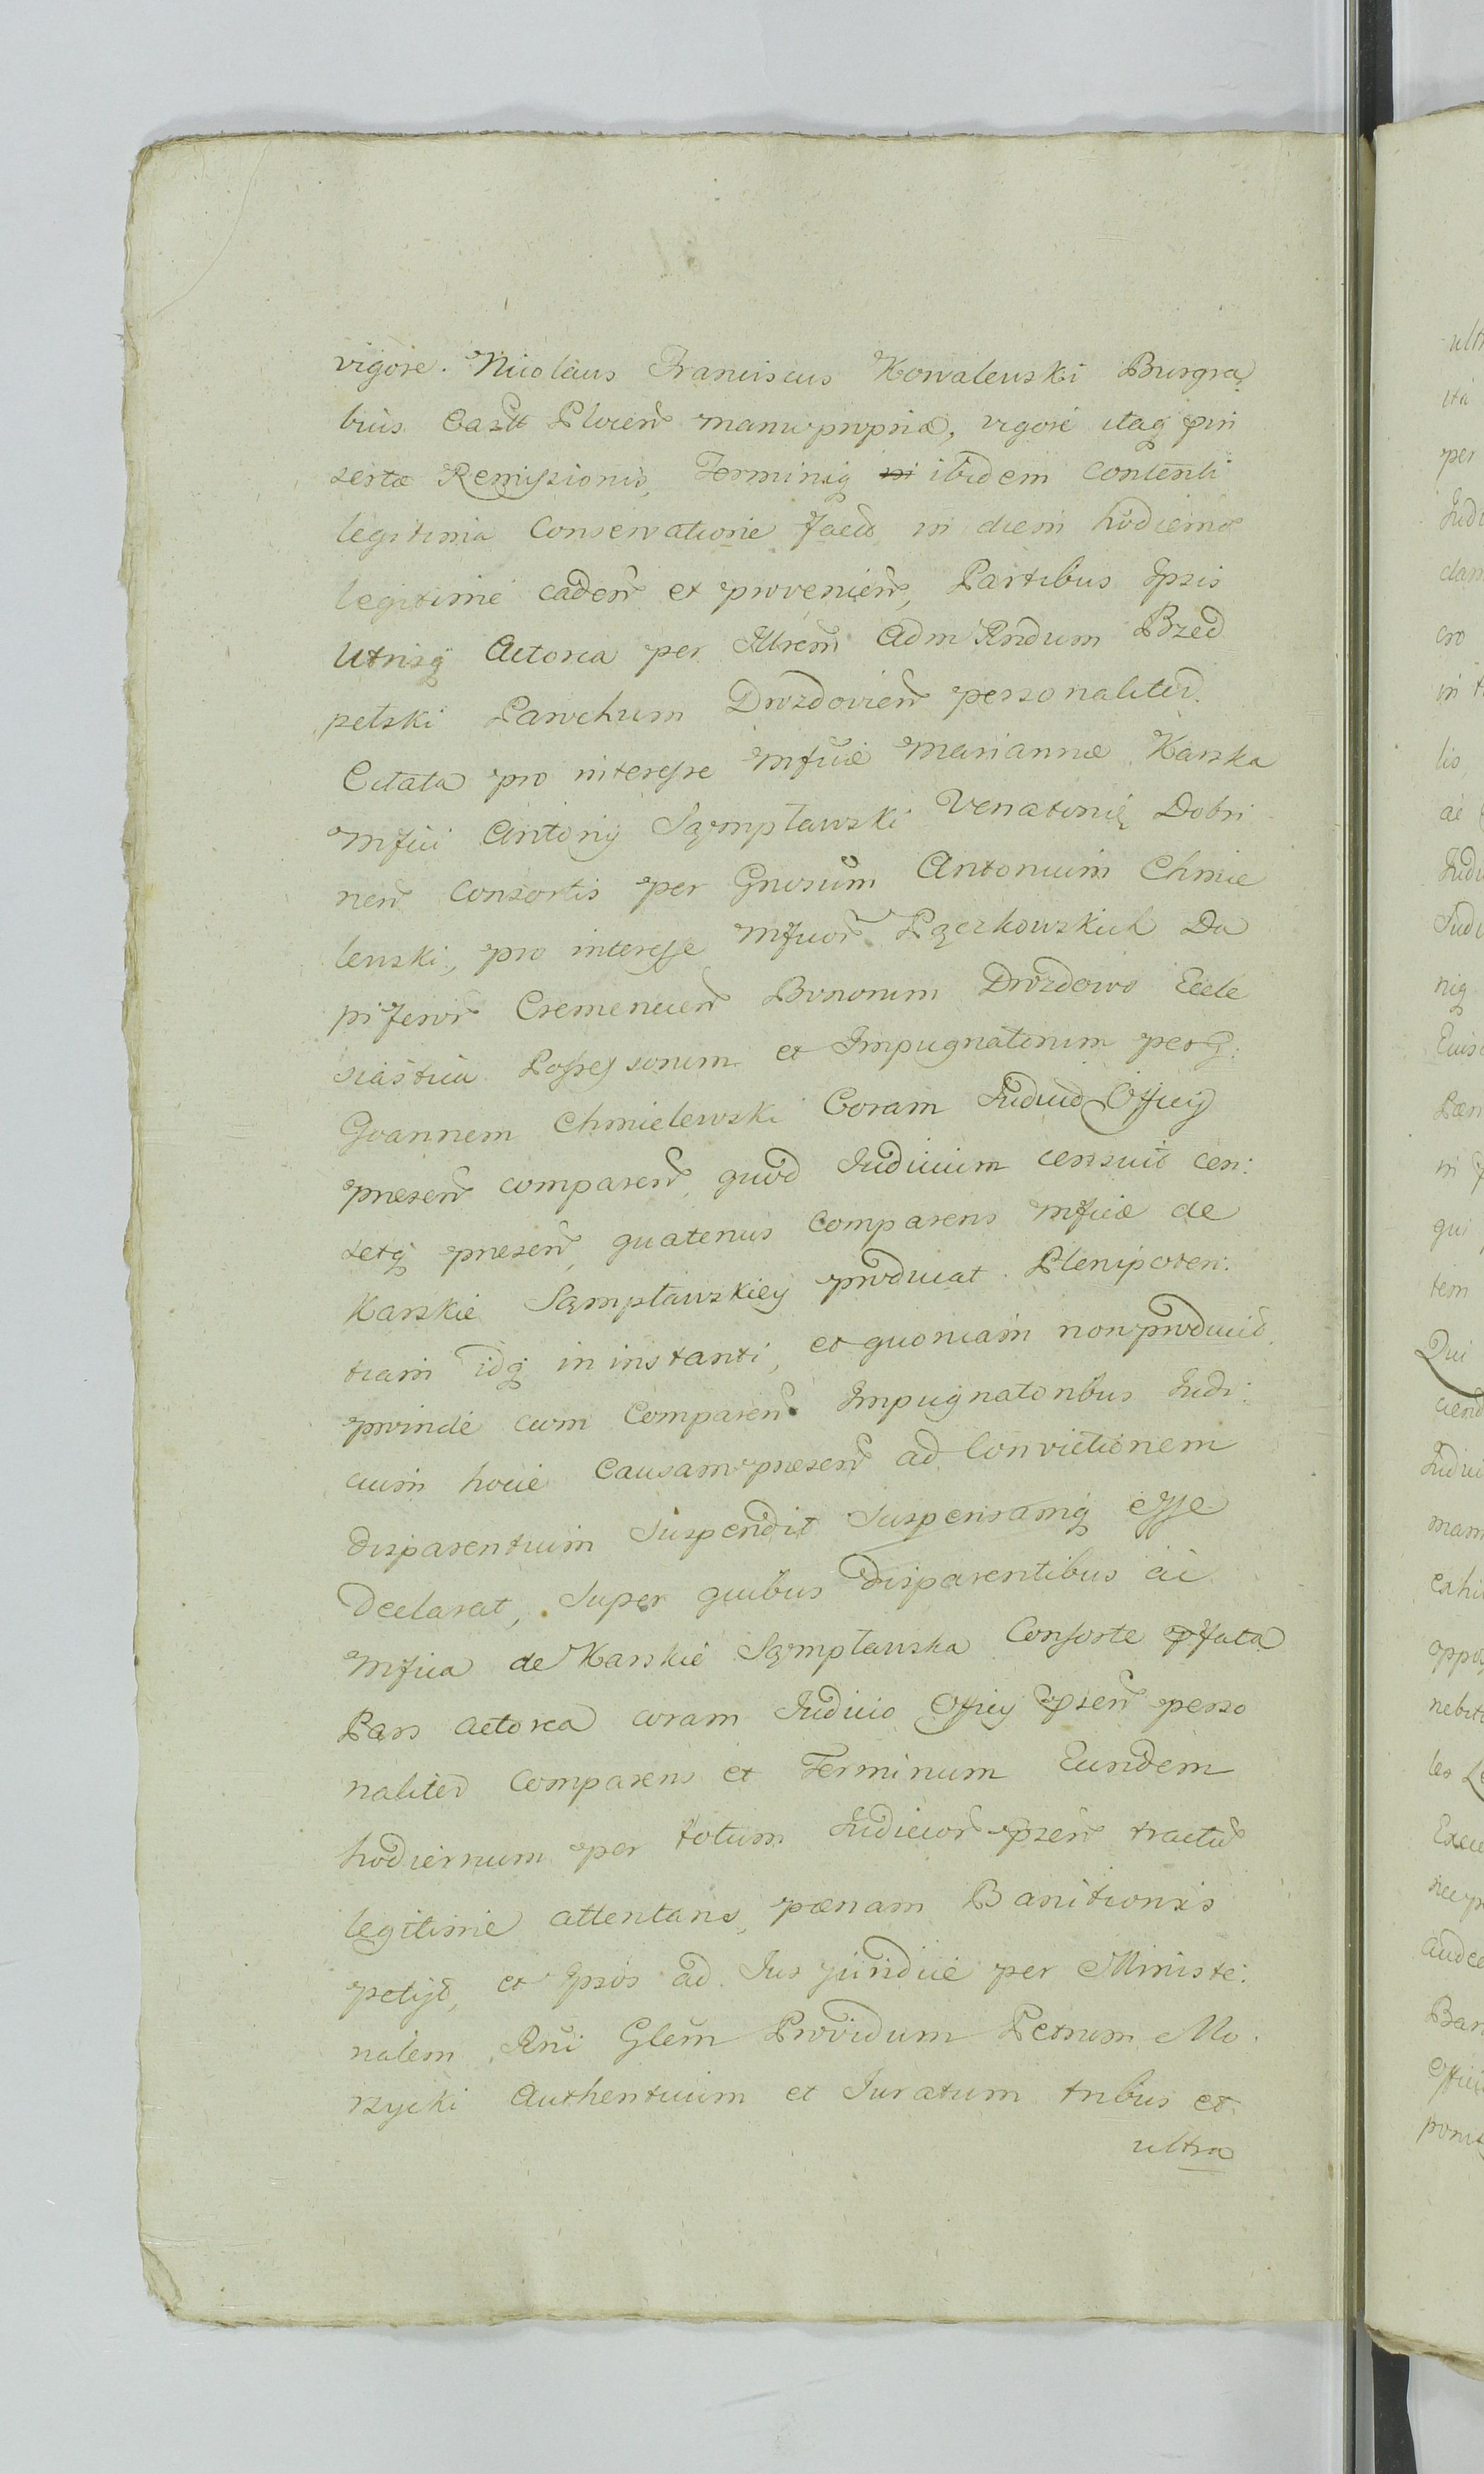 vigore. Nicolaus Franciscus Kowalewski Burgra
bius Castt Plocen̄ manu propria, vigore itaq pin
sertæ Remissionis, Terminiq ibidem Contenti
legitima Conservatione facta in diem hodierna
legitime caden̄ et provenien̄, Partibus Ipsis
Utrisq Actorea per Illrem Adm Rndum Brzed
petski Parochum Drozdovien̄ personaliter
Citata pro interesse Mficæ Mariannæ Karska
Mfici Antonij Sąmpławski Venatoris Dobri
nen̄ Consortis per Gnosum Antonium Chmie
lewski, pro interesse Mficor̄ Pączkowskich Da
piferor̄ Cremenecen̄ Bonorum Drozdowo Eccle
siastica Possessorum et Impugnatorum per G:
Joannem Chmielewski Coram Judicio Officij
presen̄ comparen̄, quod Judicium censuit cen:
setq presen̄, quatenus Comparens Mficæ de
Karskie Sąmpławskiey producat Plenipoten:
tiam idq in instanti, et quoniam non produxit
proinde cum Comparen̄ Impugnatoribus Judi:
cium hocce Causam presen̄ ad Convictionem
disparentium Suspendit Suspensamq esse
declarat, Super quibus disparentibus ac
Mfica de Karskie Sąmpławska Consorte pfata
Pars Actorea coram Judicio Officij psen̄ perso
naliter Comparens et Terminum Eundem
hodiernum per totum Judicior̄ psen̄ tractum
legitime attentans, pænam Banitionis
petijt, et Ipsos ad Jus juridice per Ministe:
rialem Rni Glem Providum Petrum Mo
rzycki Authenticum et Juratum tribus et
ultra